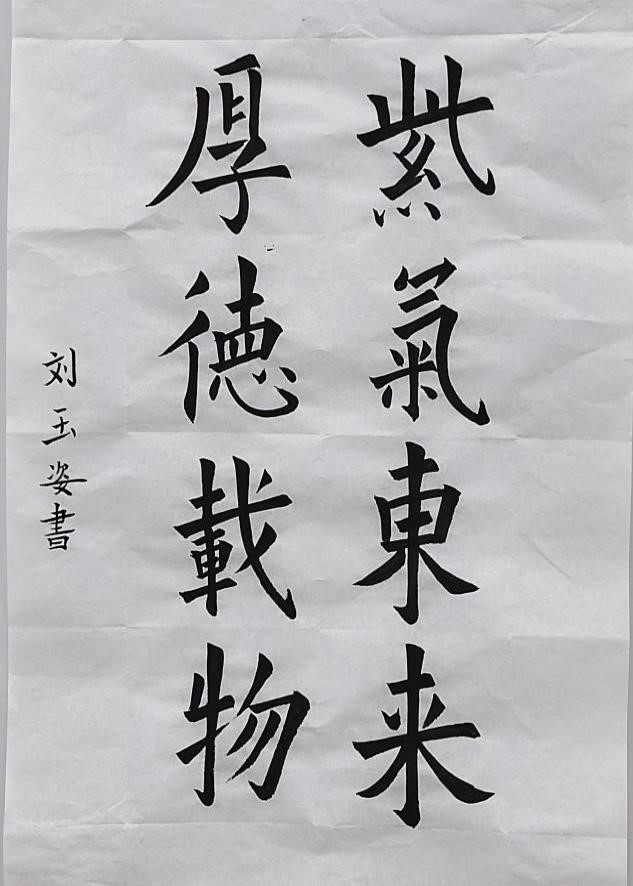 紫氣東来
厚徳載物
刘玉姿書